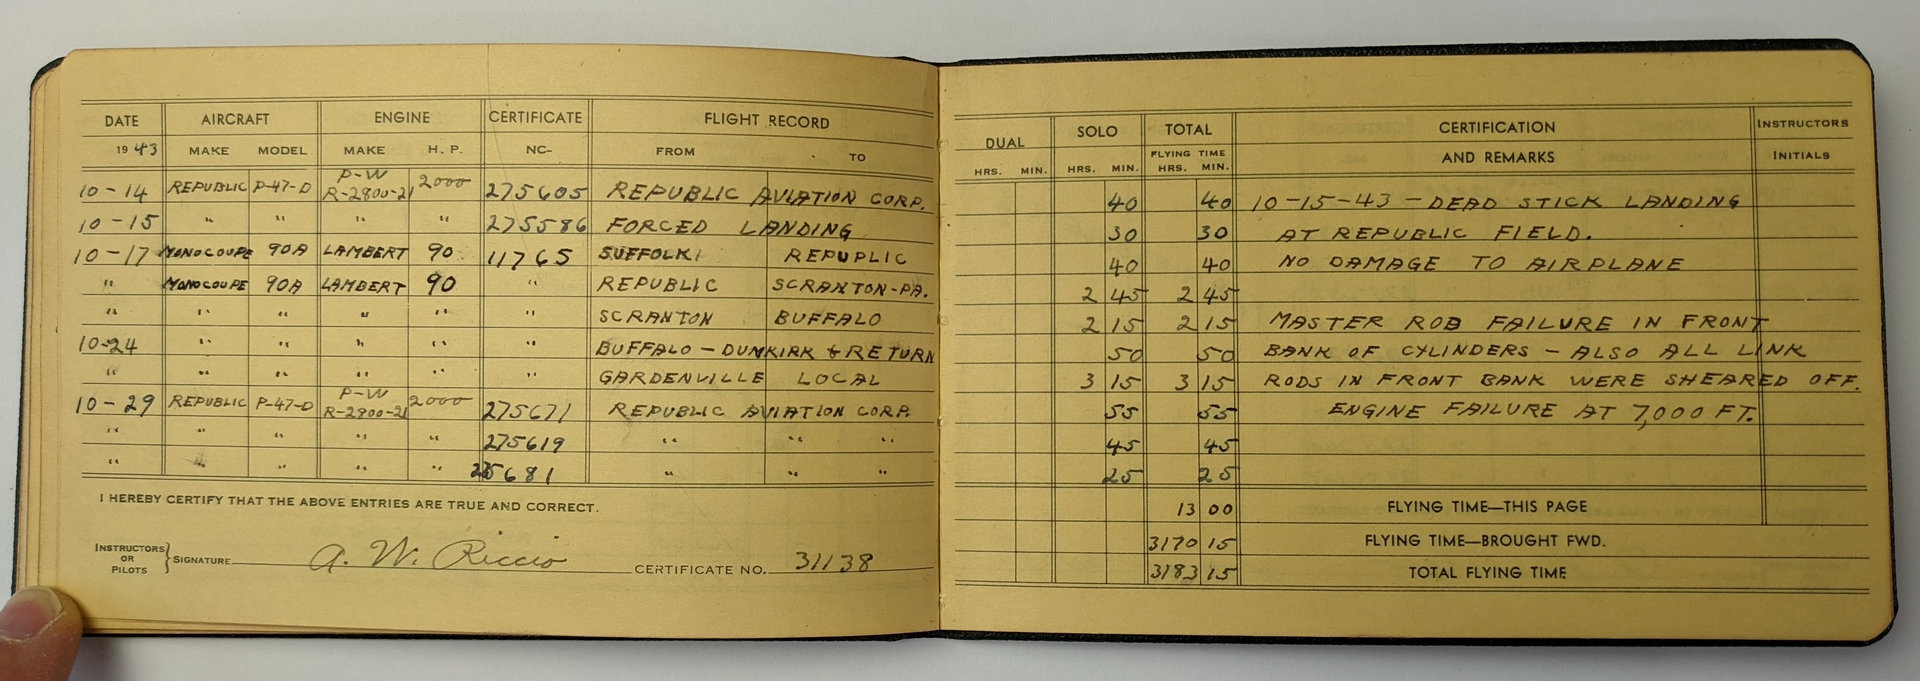 DATE AIRCRAFT ENGINE CERTIFICATE FLIGHT RECORD
1943 MAKE MODEL MAKE H. P. NC- FROM TO
10-14 REPUBLIC P-47-D P-W R-2800-21 2000 275605 REPUBLIC AVIATION CORP.
10-15 " " " " 275586 FORCED LANDING
10-17 MONOCOUPE 90A LAMBERT 90 11765 SUFFOLK REPUPLIC
" MONOCOUPE 90A LAMBERT 90 " REPUBLIC SCRANTON-PA.
" " " " " " SCRANTON BUFFALO
10-24 " " " " " BUFFALO - DUNKIRK & RETURN
" " " " " " GARDENVILLE LOCAL
10-29 REPUBLIC P-47-D P-W R-2800-21 2000 275671 REPUBLIC AVIATION CORP.
" " " " " 275619 " " "
" " " " " 275681 " " "
I HEREBY CERTIFY THAT THE ABOVE ENTRIES ARE TRUE AND CORRECT.
INSTRUCTORS OR PILOTS } SIGNATURE A. W. Riccio CERTIFICATE NO. 31138
DUAL SOLO TOTAL CERTIFICATION INSTRUCTORS
FLYING TIME AND REMARKS INITIALS
HRS. MIN. HRS. MIN. HRS. MIN.
40 40 10-15-43 - DEAD STICK LANDING
30 30 AT REPUBLIC FIELD.
40 40 NO DAMAGE TO AIRPLANE
2 45 2 45
2 15 2 15 MASTER ROD FAILURE IN FRONT
50 50 BANK OF CYLINDERS - ALSO ALL LINK
3 15 3 15 RODS IN FRONT BANK WERE SHEARED OFF.
55 55 ENGINE FAILURE AT 7,000 FT.
45 45
25 25
13 00 FLYING TIME—THIS PAGE
3170 15 FLYING TIME—BROUGHT FWD.
3183 15 TOTAL FLYING TIME